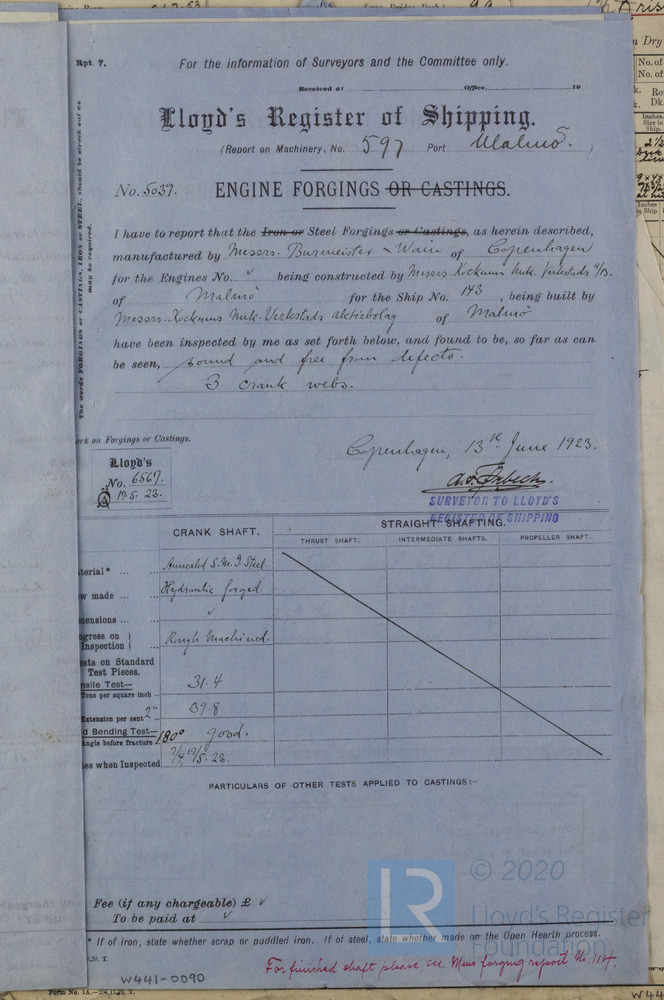 Rpt. 7.
For the information of Surveyors and the Committee only.
Received at Office, 19
Lloyd's Register of Shipping.
(Report on Machinery, No. 597 Port Malmö. )
No. 5037. ENGINE FORGINGS OR CASTINGS.
I have to report that the Iron or Steel Forgings or Castings, as herein described,
manufactured by Messrs. Burmeister & Wain of Copenhagen
for the Engines No. being constructed by Messrs. Kockums Mek. Verkstads
of Malmö for the Ship No. 143, being built by
Messrs. Kockums Mek. Verkstads Aktiebolag of Malmö
have been inspected by me as set forth below, and found to be, so far as can
be seen, sound and free from defects.
3 crank webs.
The words FORGINGS or CASTINGS, IRON or STEEL, should be struck out as
may be required.
ark on Forgings or Castings.
Copenhagen, 13th June 1923.
Lloyd's
No. 6567.
17.5.23.
SURVEYOR TO LLOYD'S
REGISTER OF SHIPPING
CRANK SHAFT. STRAIGHT SHAFTING.
THRUST SHAFT. INTERMEDIATE SHAFTS. PROPELLER SHAFT.
terial* ... Annealed S. M. I Steel.
w made ... Hydraulic forged.
mensions ...
ogress on
Inspection Rough Machined.
ests on Standard
Test Pieces.
nsile Test—
Tons per square inch 31.4
Extension per cent 2" 39.8
d Bending Test—
Angle before fracture 180° good.
es when Inspected 7/4 17/5. 23.
PARTICULARS OF OTHER TESTS APPLIED TO CASTINGS:—
Fee (if any chargeable) £
To be paid at
* If of iron, state whether scrap or puddled iron. If of steel, state whether made on the Open Hearth process.
For finished shaft please see Mms forging report No. 114.
W441-0090
© 2020
Lloyd's Register
Foundation